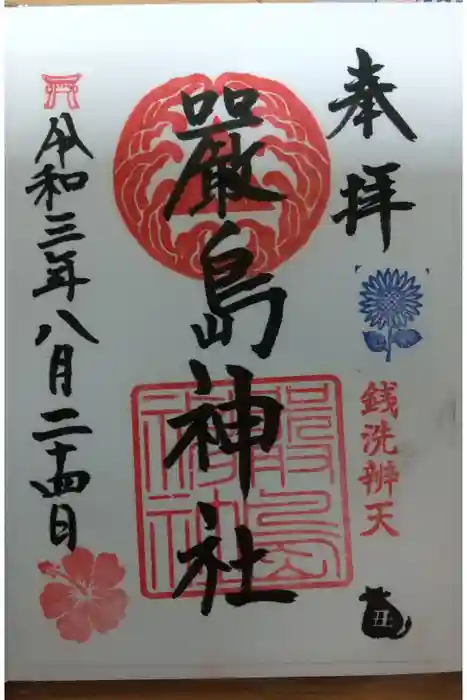 奉拝
銭洗辨天
丑
嚴島神社
嚴島神社
令和三年八月二十四日